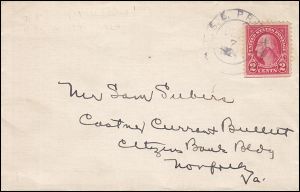 UNITED STATES POSTAGE
2 CENTS 2
Mr Sam Subers
Castner Curran & Bullitt
Citizens Bank Bldg
Norfolk
Va.